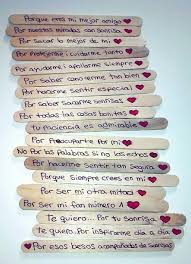 Porque eres mi mejor amigo
Por nuestras miradas con sonrisas
Por sacar lo mejor de mi
Por protegerme y cuidarme tanto
Por ayudarme y apoyarme siempre
Por saber comerme tan bien
Por hacerme sentir especial
Por saber sacarme sonrisas
Por todas las cosas bonitas
Tu paciencia es admirable
Por Preocuparte por mi
No Por las palabras si no los hechos
Por hacerme sentir Segura
Porque Siempre crees en mi
Por ser mi otra mitad
Por ser mi tan número 1
Te quiero... Por tu Sonrisa
Te quiero... Por inspirarme día a día
Por esos besos acompañados de sonrisas